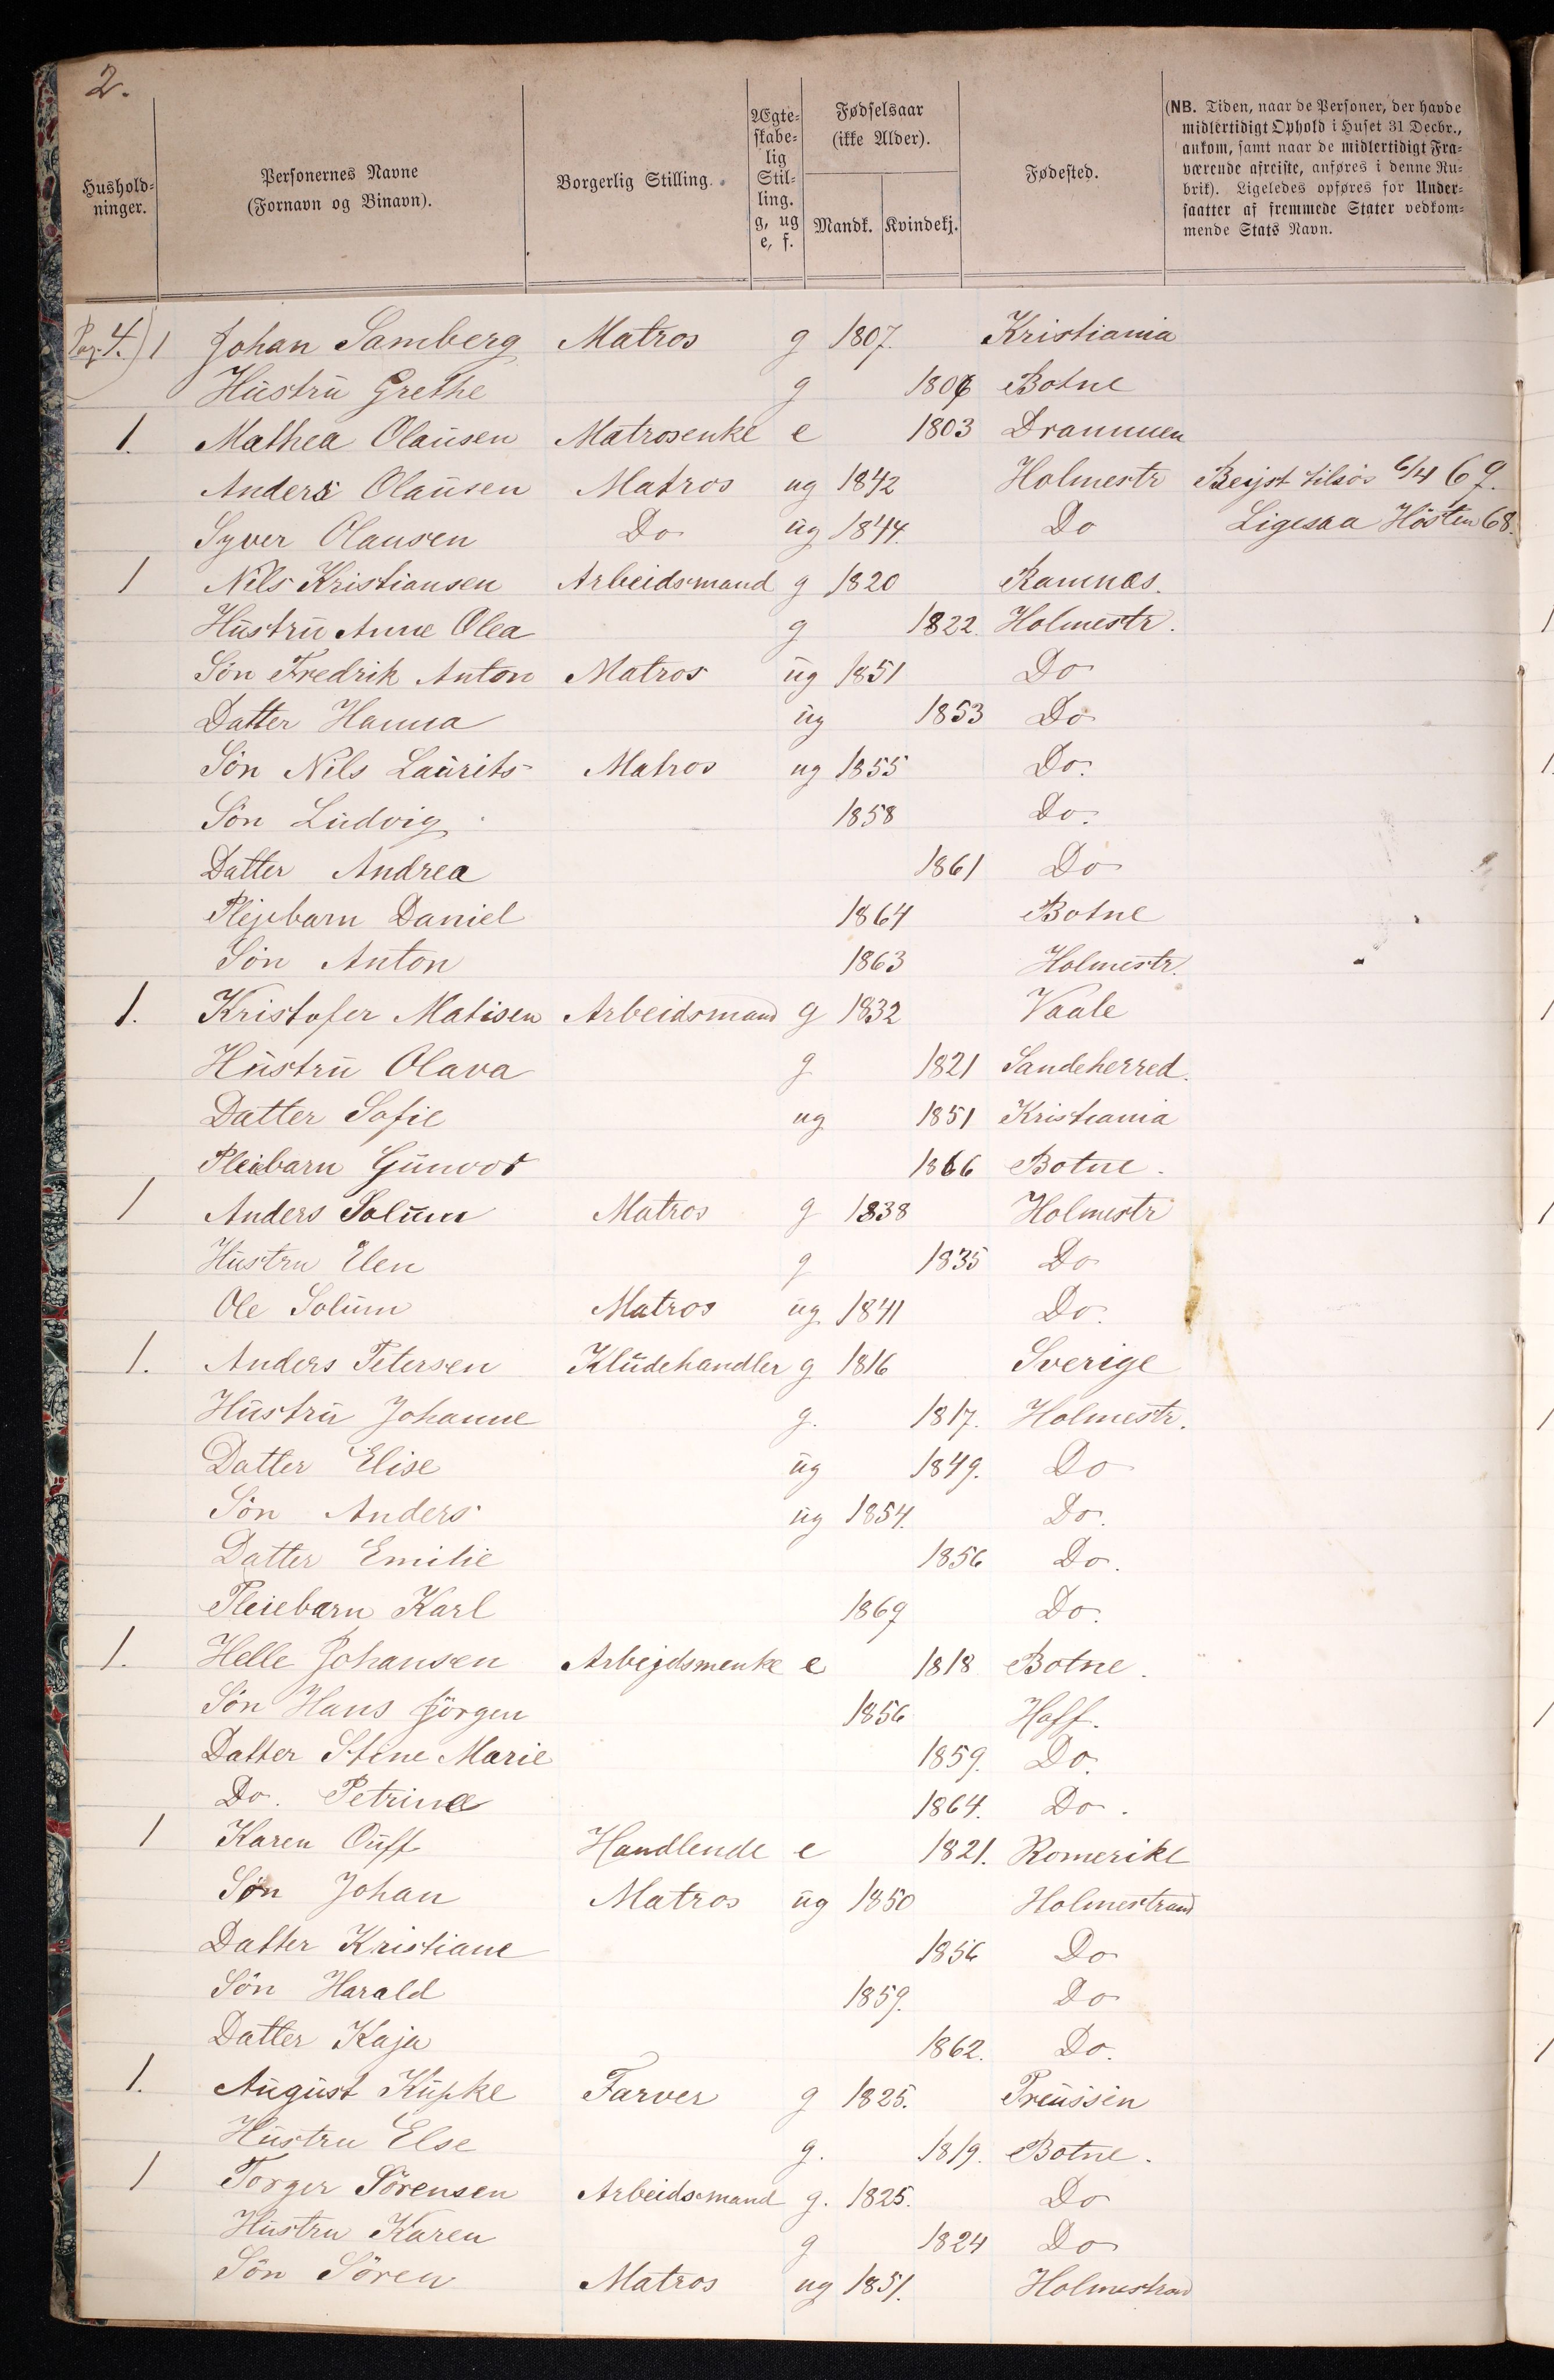 2.
Hushold-
ninger.
Personernes Navne
(Fornavn og Binavn).
Borgerlig Stilling.
Ægte-
skabe-
lig
Stil-
ling.
g, ug
e, f.
Fødselsaar
(ikke Alder).
Mandk. Kvindekj.
Fødested.
(NB. Tiden, naar de Personer, der havde
midlertidigt Ophold i Huset 31 Decbr.,
ankom, samt naar de midlertidigt Fra-
værende afreiste, anføres i denne Ru-
brik). Ligeledes opføres for Under-
saatter af fremmede Stater vedkom-
mende Stats Navn.
Pag. 4.) 1 Johan Samberg Matros g 1807. Kristiania
Hustru Grethe g 1806 Botne
1. Mathea Olausen Matrosenke e 1803 Drammen
Anders Olausen Matros ug 1842 Holmestr Rejst tilsøs 6/4 69.
Syver Olausen Do ug 1844. Do Ligesaa Høsten 68.
1 Nils Kristiansen Arbeidsmand g 1820 Ramnæs.
Hustru Anne Olea g 1822. Holmestr.
Søn Fredrik Anton Matros ug 1851 Do
Datter Hanna ug 1853 Do
Søn Nils Laurits Matros ug 1855 Do.
Søn Ludvig 1858 Do.
Datter Andrea 1861 Do
Plejebarn Daniel 1864 Botne
Søn Anton 1863 Holmestr.
1. Kristofer Matisen Arbeidsmand g 1832 Vaale
Hustru Olava g 1821 Sandeherred.
Datter Sofie ug 1851 Kristiania
Pleiebarn Gunvor 1866 Botne.
1 Anders Solum Matros g 1838 Holmestr
Hustru Elen g 1835 Do
Ole Solum Matros ug 1841 Do.
1. Anders Petersen Kludehandler g 1816 Sverige
Hustru Johanne g. 1817. Holmestr.
Datter Elise ug 1849. Do
Søn Anders ug 1854. Do.
Datter Emilie 1856 Do.
Pleiebarn Karl 1869 Do.
1. Helle Johansen Arbejdsmenke e 1818 Botne.
Søn Hans Jørgen 1856 Hoff.
Datter Stine Marie 1859. Do.
Do. Petrine 1864. Do.
1 Karen Ouff Handlende e 1821. Romerike
Søn Johan Matros ug 1850 Holmestrand
Datter Kristiane 1856 Do
Søn Harald 1859. Do
Datter Kaja 1862. Do.
1. August Kupke Farver g 1825. Preussen
Hustru Else g. 1819. Botne.
1 Torger Sørensen Arbeidsmand g. 1825. Do
Hustru Karen g 1824 Do
Søn Søren Matros ug 1851. Holmestrand